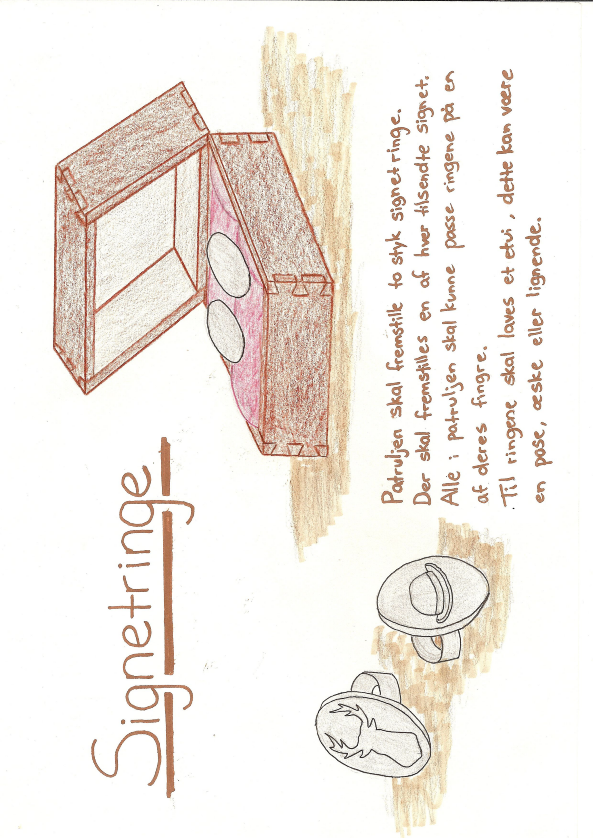 Signetringe
Patruljen skal fremstille to styk signetringe.
Der skal fremstilles en af hver tilsendte signet.
Alle i patruljen skal kunne passe ringene på en
af deres fingre.
Til ringene skal laves et etui, dette kan være
en pose, æske eller lignende.